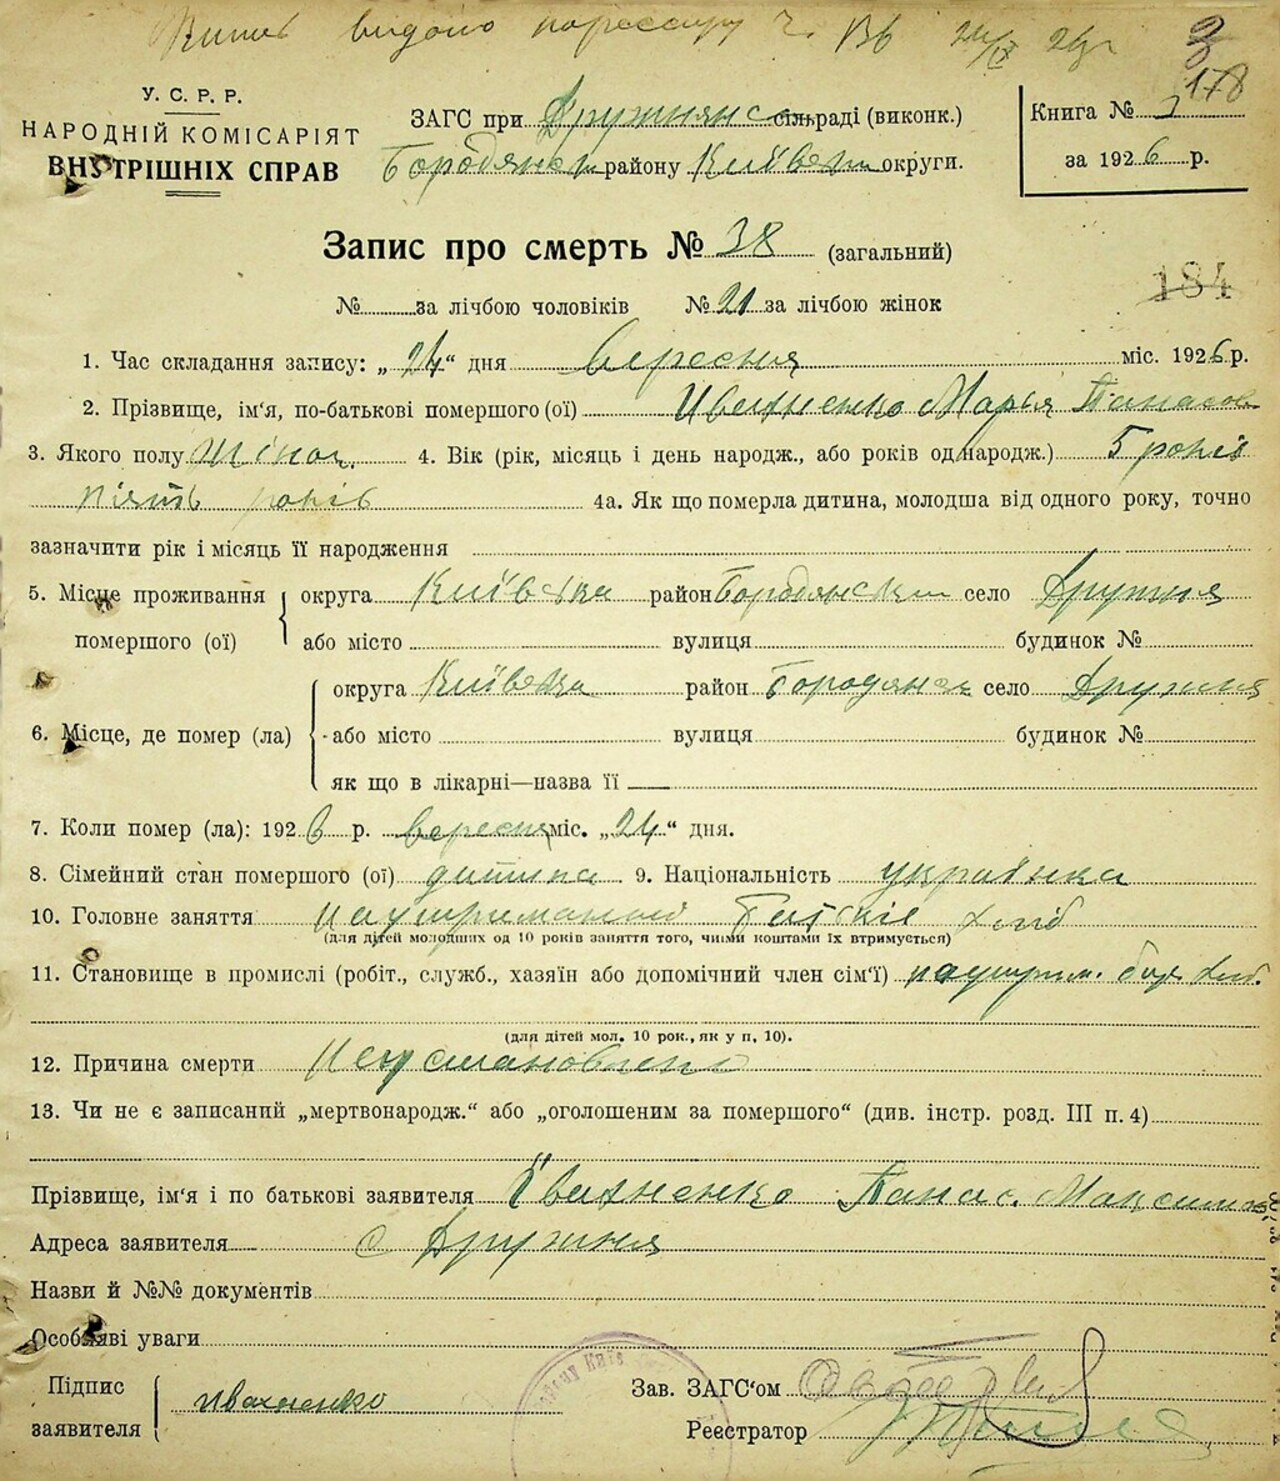 Витяг видано
24/IX 26 р
178
У. С. Р. Р.
НАРОДНІЙ КОМІСАРІЯТ
ВНУТРІШНІХ СПРАВ
ЗАГС при Дружнянс сільраді (виконк.)
Бородянськ району Київськ округи.
Книга №
за 1926 р.
Запис про смерть № 38 (загальний)
184
№ за лічбою чоловіків № 21 за лічбою жінок
1. Час складання запису: „24“ дня вересня міс. 1926 р.
2. Прізвище, ім‘я, по-батькові помершого (ої) Ивахненко Марья Панасов
3. Якого полу жіноч. 4. Вік (рік, місяць і день народж., або років од народж.) 5 років
пʼять років 4а. Як що померла дитина, молодша від одного року, точно
зазначити рік і місяць її народження
5. Місце проживання помершого (ої) округа Київська район Бородянськ село Дружня
або місто вулиця будинок №
6. Місце, де помер (ла) округа Київська район Бородянськ село Дружня
або місто вулиця будинок №
як що в лікарні—назва її
7. Коли помер (ла): 1926 р. вересня міс. „24“ дня.
8. Сімейний стан помершого (ої) дитина 9. Національність українка
10. Головне заняття
(для дітей молодших од 10 років заняття того, чиїми коштами їх втримується)
11. Становище в промислі (робіт., служб., хазяїн або допомічний член сім‘ї)
(для дітей мол. 10 рок., як у п. 10).
12. Причина смерти Неустановлено
13. Чи не є записаний „мертвонародж.“ або „оголошеним за помершого“ (див. інстр. розд. III п. 4)
Прізвище, ім‘я і по батькові заявителя Ївахненко Панас Максимов
Адреса заявителя с Дружня
Назви й №№ документів
Особливі уваги
Підпис заявителя Ивахненко
Зав. ЗАГС‘ом
Реєстратор